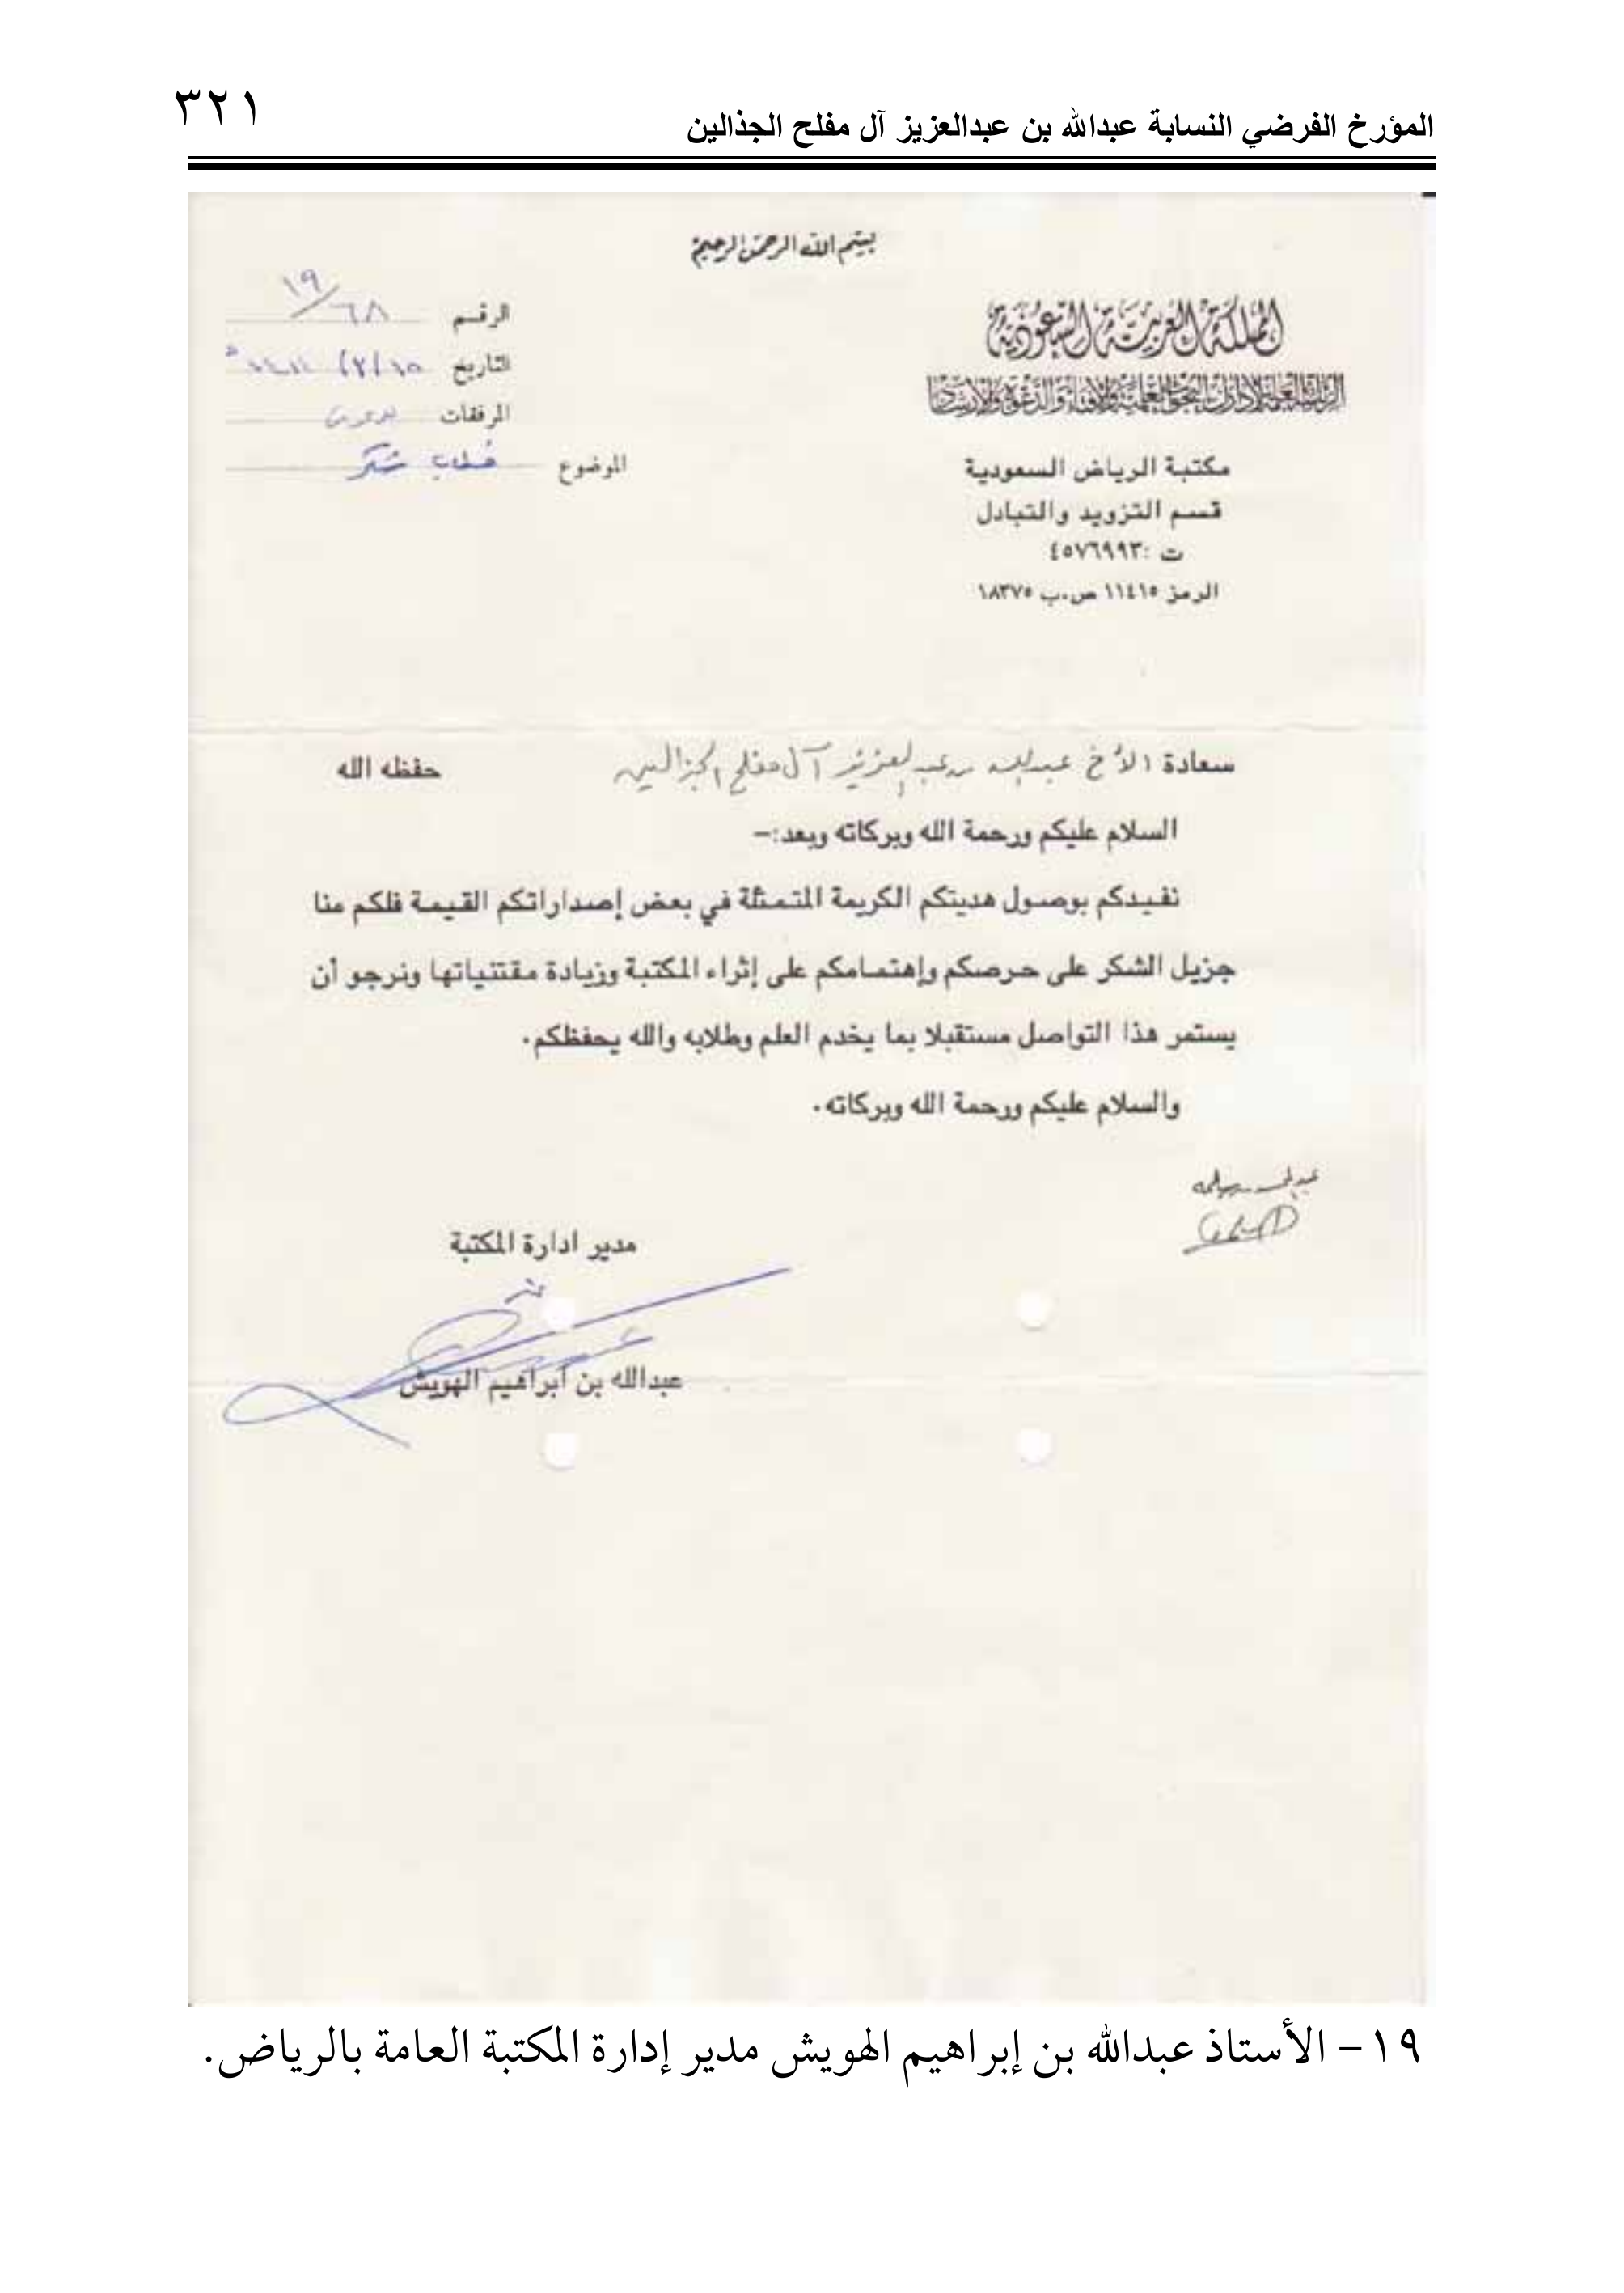 المؤرخ الفرضي النسابة عبدالله بن عبدالعزيز آل مفلح الجذالين
٣٢١
بسم الله الرحمن الرحيم
المملكة العربية السعودية
الرئاسة العامة لإدارات البحوث العلمية والإفتاء والدعوة والإرشاد
مكتبة الرياض السعودية
قسم التزويد والتبادل
ت :٤٥٧٦٩٩٣
الرمز ١١٤١٥ ص.ب ١٨٣٧٥
الرقم ١٩/٦٨
التاريخ
المرفقات
الموضوع خطاب شكر
سعادة الأخ عبدالله بن عبدالعزيز آل مفلح الجذالين حفظه الله
السلام عليكم ورحمة الله وبركاته وبعد:–
نفيدكم بوصول هديتكم الكريمة المتمثلة في بعض إصداراتكم القيمة فلكم منا
جزيل الشكر على حرصكم وإهتمامكم على إثراء المكتبة وزيادة مقتنياتها ونرجو أن
يستمر هذا التواصل مستقبلا بما يخدم العلم وطلابه والله يحفظكم.
والسلام عليكم ورحمة الله وبركاته.
مدير ادارة المكتبة
عبدالله بن ابراهيم الهويش
١٩– الأستاذ عبدالله بن إبراهيم الهويش مدير إدارة المكتبة العامة بالرياض.